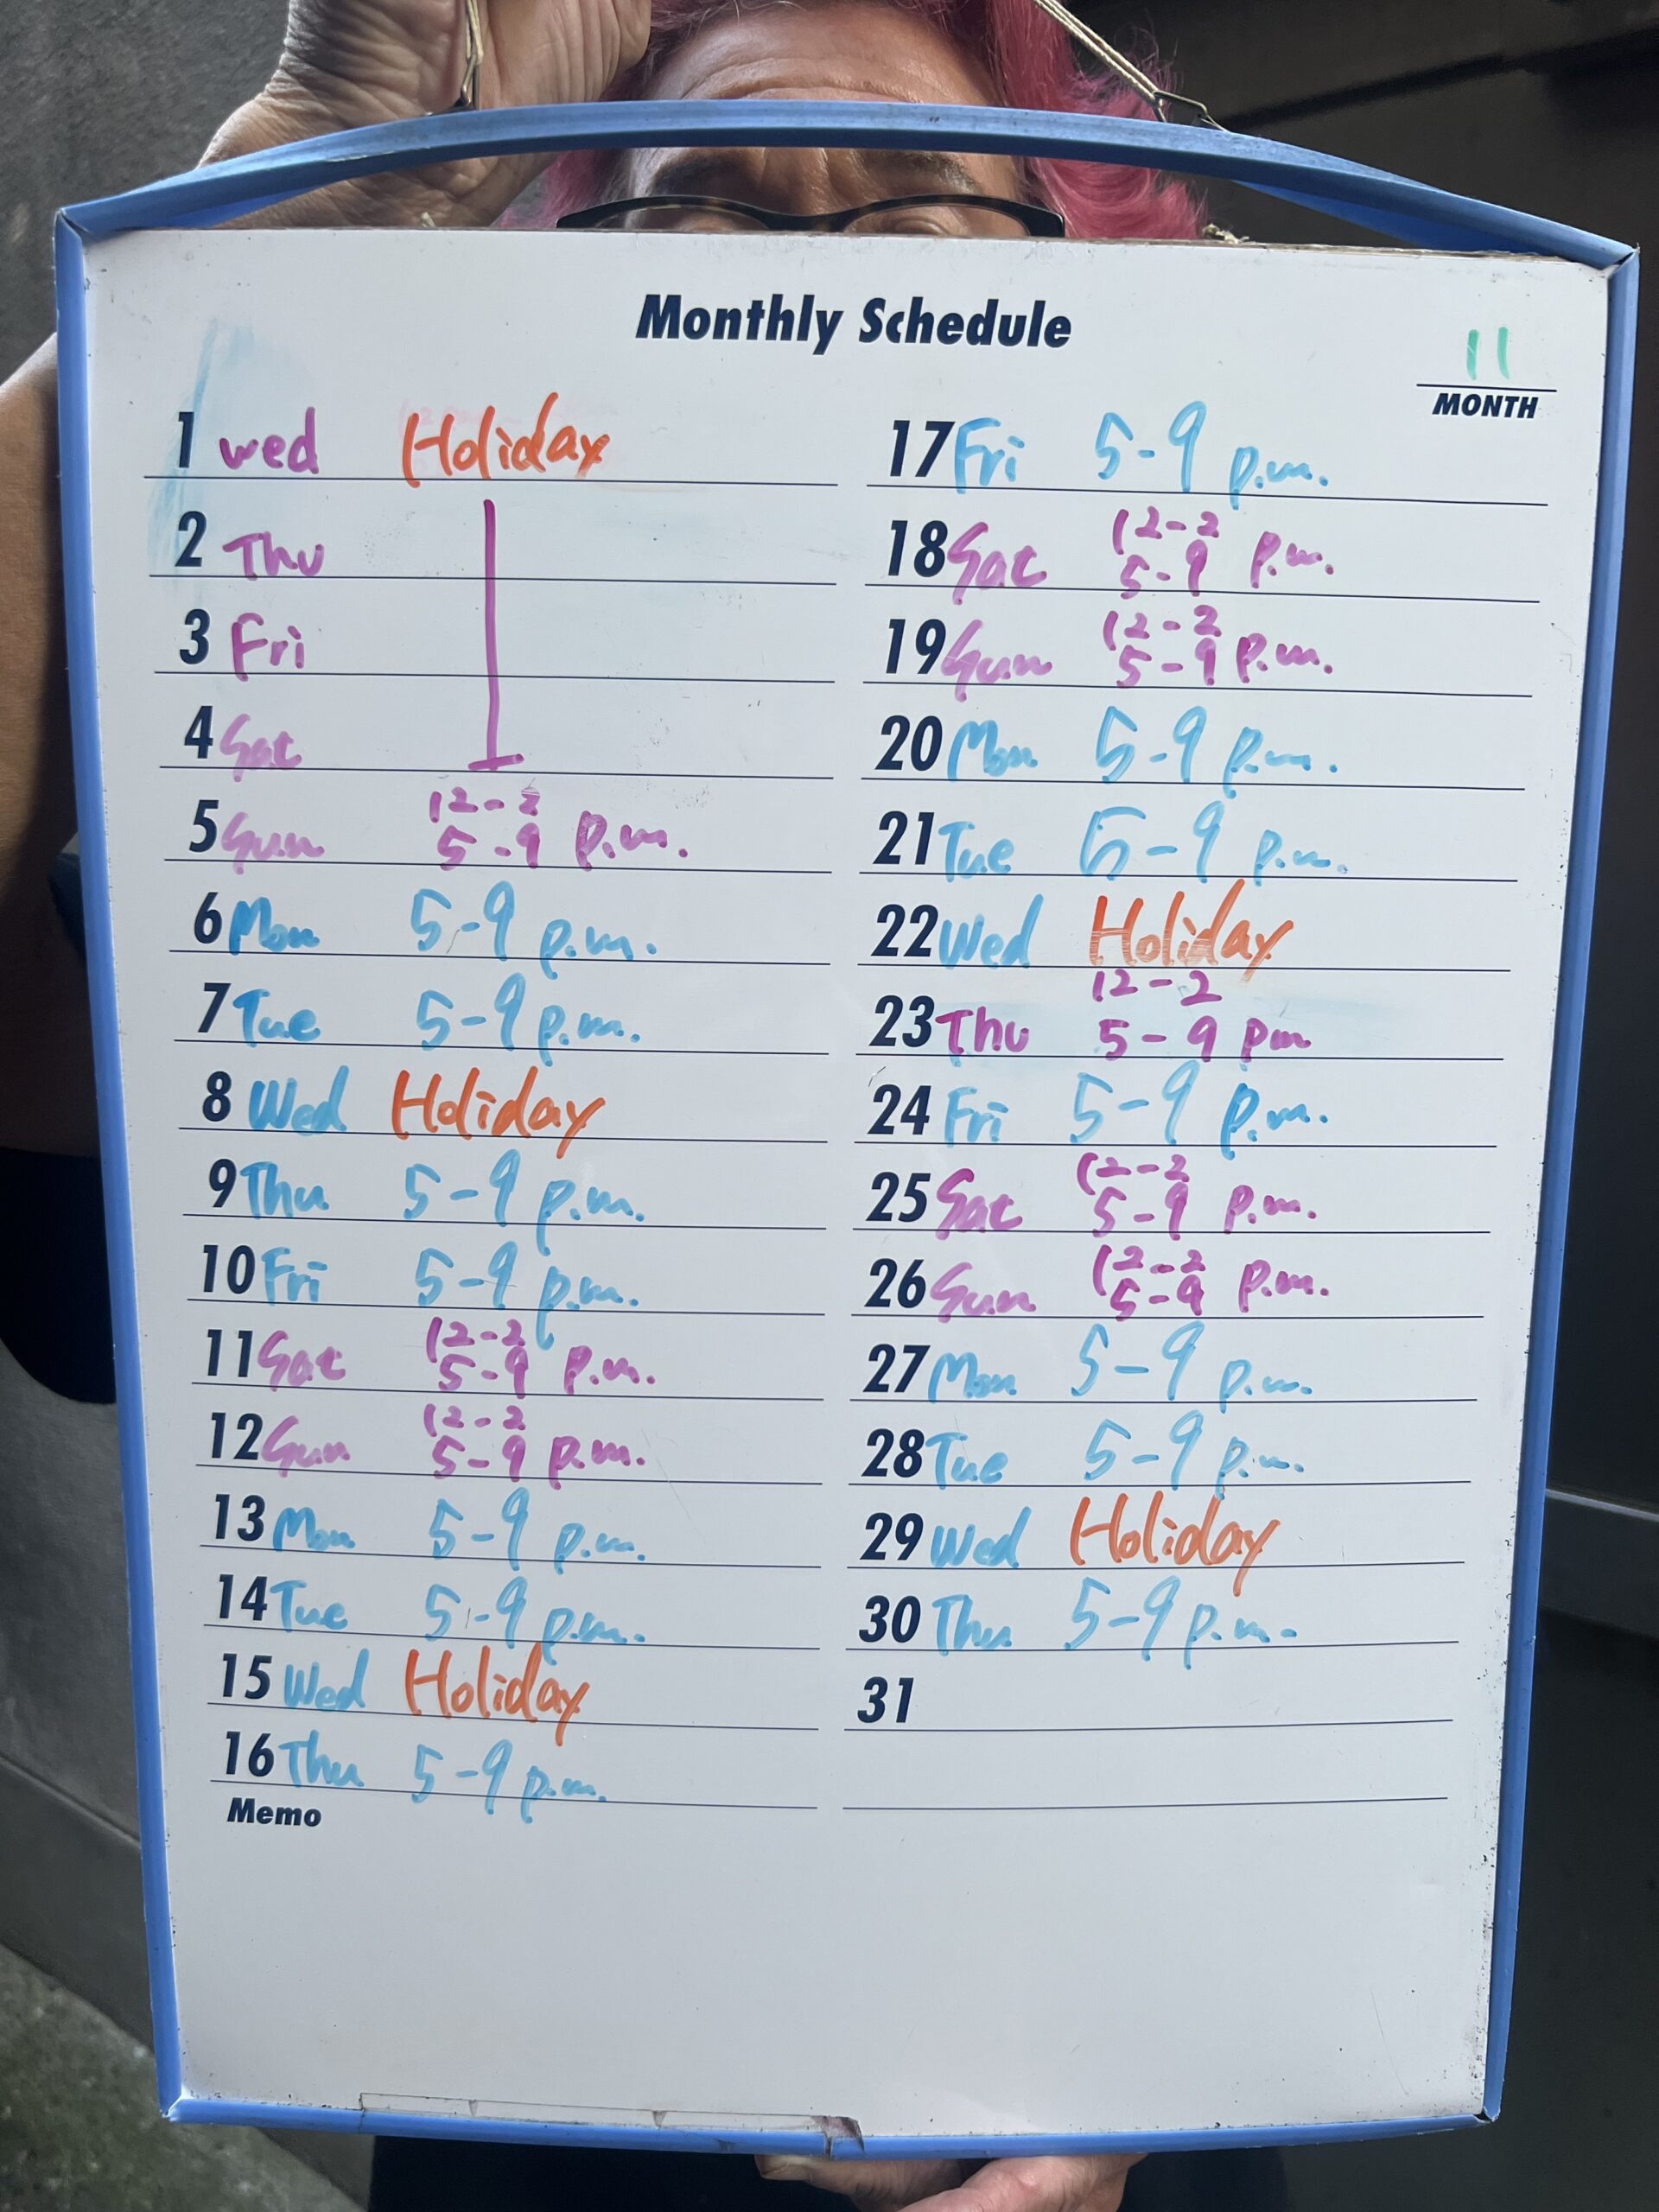 Monthly Schedule
11
MONTH
1 wed Holiday
2 Thu
3 Fri
4 Sat
12-2
5 Sun 5-9 p.m.
6 Mon 5-9 p.m.
7 Tue 5-9 p.m.
8 Wed Holiday
9 Thu 5-9 p.m.
10 Fri 5-9 p.m.
12-2
11 Sat 5-9 p.m.
12-2
12 Sun 5-9 p.m.
13 Mon 5-9 p.m.
14 Tue 5-9 p.m.
15 Wed Holiday
16 Thu 5-9 p.m.
17 Fri 5-9 p.m.
12-2
18 Sat 5-9 p.m.
12-2
19 Sun 5-9 p.m.
20 Mon 5-9 p.m.
21 Tue 5-9 p.m.
22 Wed Holiday
12-2
23 Thu 5-9 pm
24 Fri 5-9 p.m.
12-2
25 Sat 5-9 p.m.
12-2
26 Sun 5-9 p.m.
27 Mon 5-9 p.m.
28 Tue 5-9 p.m.
29 Wed Holiday
30 Thu 5-9 p.m.
31
Memo